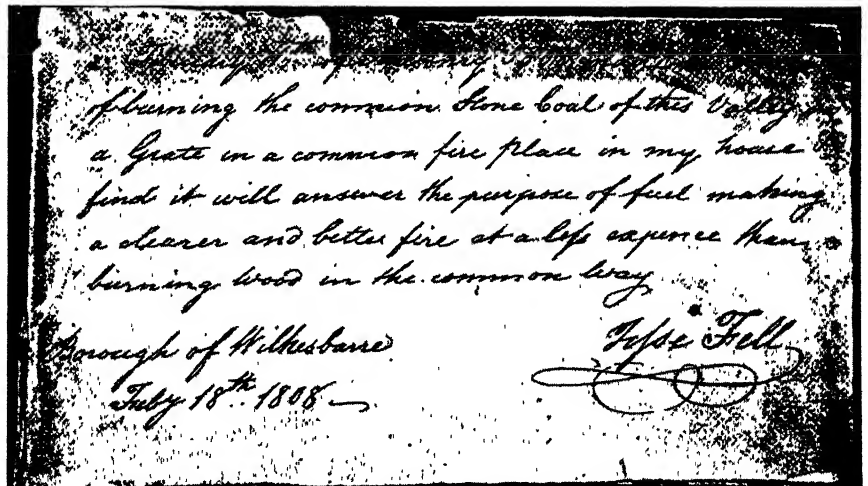 of burning the common Stone Coal of this Valley
a Grate in a common fire place in my house
find it will answer the purpose of fuel making
a clearer and better fire at a less expence than
burning wood in the common way
Borough of Wilkesbarre
Feby 18th. 1808
Jesse Fell